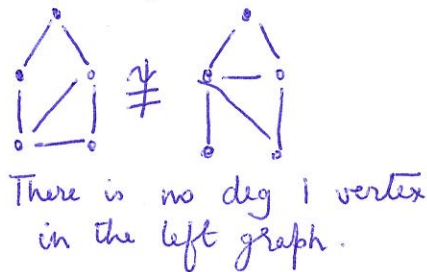 ≇
There is no deg 1 vertex
in the left graph.